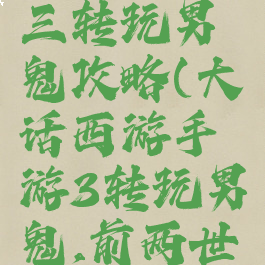 三转玩男
鬼攻略(大
话西游手
游3转玩男
鬼.前两世